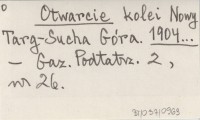 Otwarcie kolei Nowy
Targ-Sucha Góra. 1904...
– Gaz. Podtatrz. 2,
nr 26.
31/057/0969